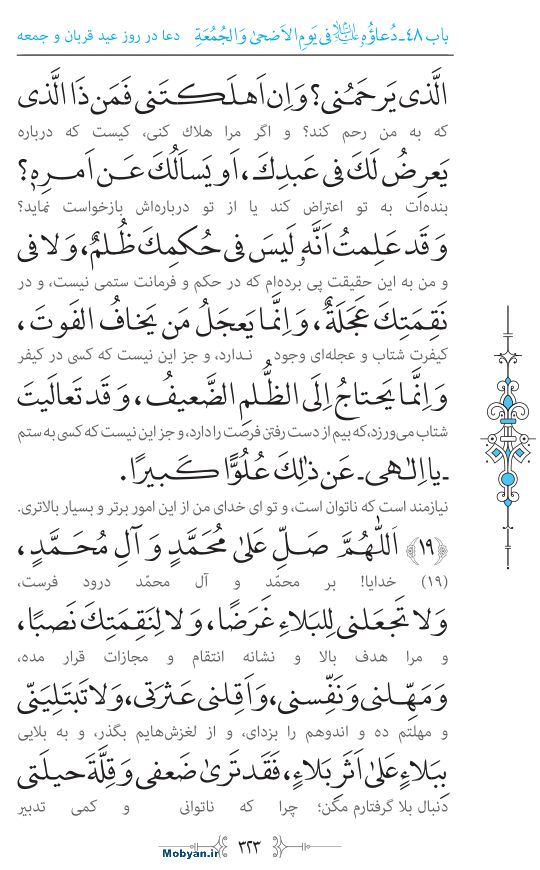 باب ۴۸ـ دُعاؤُهُ علیه‌السلام فی یَومِ الاَضحیٰ وَ الجُمُعَةِ دعا در روز عید قربان و جمعه
الَّذی یَرحَمُنی؟ وَ اِن اَهلَـکتَنی فَمَن ذَا الَّذی
که به من رحم کند؟ و اگر مرا هلاک کنی، کیست که درباره
یَعرِضُ لَكَ فی عَبدِكَ، اَو یَساَلُكَ عَن اَمـرِهٖ؟
بنده‌ات به تو اعتراض کند یا از تو درباره‌اش بازخواست نماید؟
وَ قَد عَلِمتُ اَنَّهٗ لَیسَ فی حُکمِكَ ظُلمٌ، وَ لا فی
و من به این حقیقت پی برده‌ام که در حکم و فرمانت ستمی نیست، و در
نَقِمَتِكَ عَجَلَةٌ، وَ اِنَّما یَعجَلُ مَن یَخافُ الفَوتَ،
کیفرت شتاب و عجله‌ای وجود ندارد، و جز این نیست که کسی در کیفر
وَ اِنَّما یَحتاجُ اِلَی الظُّلمِ الضَّعیفُ، وَ قَد تَعالَیتَ
شتاب می‌ورزد، که بیم از دست رفتن فرصت را دارد، و جز این نیست که کسی به ستم
ـ یا اِلـٰهی ـ عَن ذٰلِكَ عُلُوًّا کَـبیرًا.
نیازمند است که ناتوان است، و تو ای خدای من از این امور برتر و بسیار بالاتری.
﴿۱۹﴾ اَللّٰهُمَّ صَلِّ عَلیٰ مُحَمَّدٍ وَ آلِ مُحَمَّدٍ،
(۱۹) خدایا! بر محمّد و آل محمّد درود فرست،
وَ لا تَجعَلنی لِلبَلاءِ غَرَضًا، وَ لا لِنَقِمَتِكَ نَصبًا،
و مرا هدف بالا و نشانه انتقام و مجازات قرار مده،
وَ مَهِّلنی وَ نَفِّسنی، وَ اَقِلنی عَثرَتی، وَ لا تَبتَلِیَنّی
و مهلتم ده و اندوهم را بزدای، و از لغزش‌هایم بگذر، و به بلایی
بِبَلاءٍ عَلیٰ اَثَرِ بَلاءٍ، فَقَد تَریٰ ضَعفی وَ قِلَّةَ حیلَتی
دنبال بلا گرفتارم مکن؛ چرا که ناتوانی و کمی تدبیر
۳۲۳
Mobyan.ir